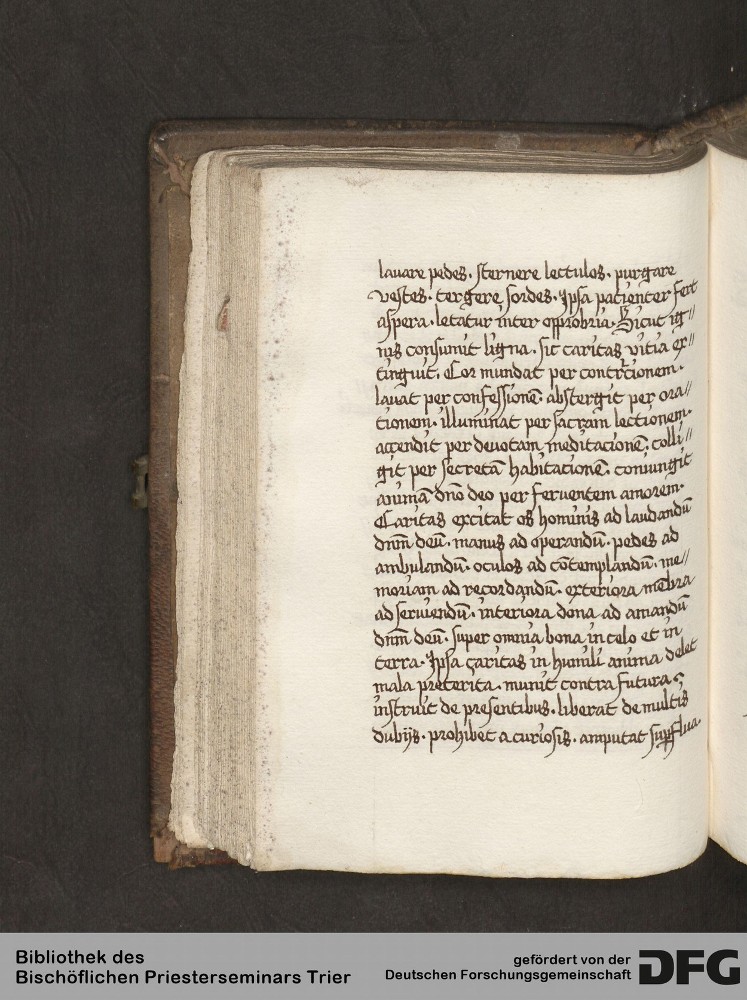 lauare pedes. sternere lectulos. purgare
vestes. tergere sordes. Ipsa pacienter fert
aspera. letatur inter opprobria. Sicut ig//
nis consumit ligna. sic caritas vitia ex//
tinguit. Cor mundat per contricionem.
lauat per confessionē. abstergit per ora//
tionem. illuminat per sacram lectionem.
accendit per deuotam meditacionē. colli//
git per secretā habitacionē. coniungit
animā dn̄o deo per feruentem amorem.
Caritas excitat os hominis ad laudandū
dn̄m deū. manus ad operandū. pedes ad
ambulandū. oculos ad cōtemplandū. me//
moriam ad recordandū. exteriora mēbra
ad seruiendū. interiora dona ad amandū
dn̄m deū. super omnia bona in celo et in
terra. Ipsa caritas in humili anima delet
mala preterita. munit contra futura
instruit de presentibus. liberat de multis
dubijs. prohibet a curiosis. amputat suꝑflua.
Bibliothek des
Bischöflichen Priesterseminars Trier
gefördert von der
Deutschen Forschungsgemeinschaft
DFG